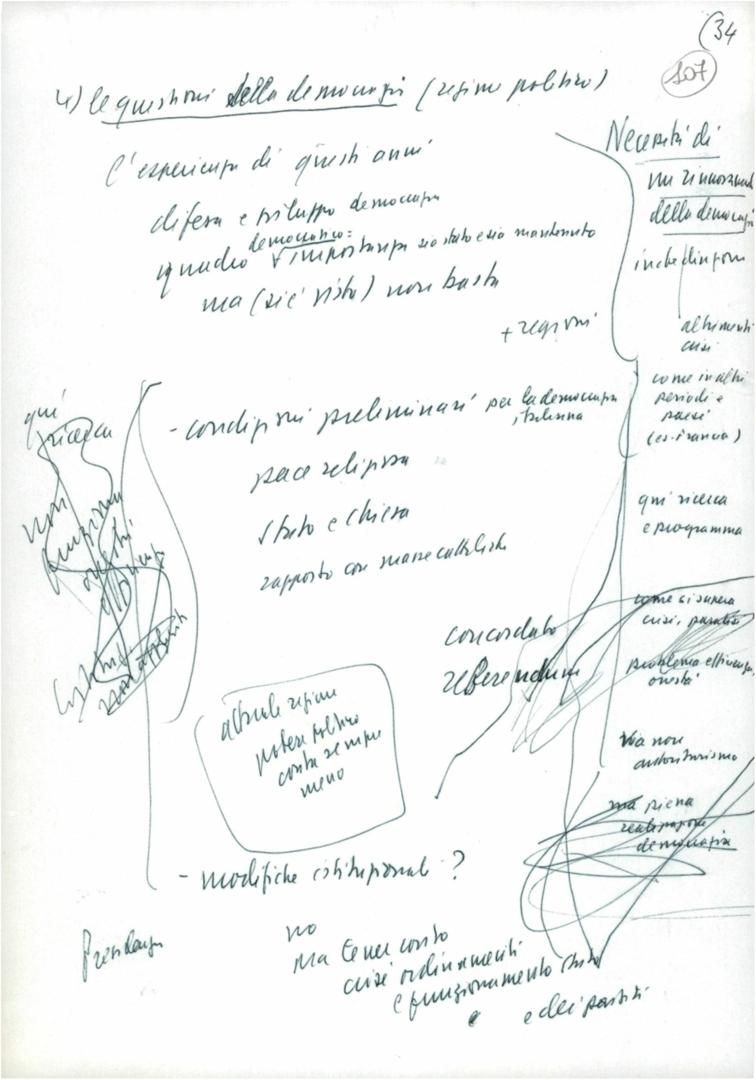 (34
107
4) le questioni della democrazia (regime politico)
l'esperienza di questi anni
difesa e sviluppo democrazia
quadro democratico: importanza sia stato e sia mantenuto
ma (si è visto) non basta
+ regioni
- condizioni preliminari per la democrazia
italiana
pace religiosa
stato e chiesa
rapporto con masse cattoliche
concordato
referendum
attuale regime
potere politico
conta sempre
meno
- modifiche istituzionali ?
no
ma tener conto
crisi ordinamenti
e funzionamento stato
e dei partiti
Presidenza
qui
ricerca
non
funziona
onestà
efficienza
Necessità di
un rinnovament
della democrazi
in che direzioni
altrimenti
crisi
come in altri
periodi e
paesi
(es. Francia)
qui ricerca
e programma
come si supera
crisi, paralisi
problema efficienza,
onestà
via non
autoritarismo
ma piena
realizzazione
democrazia